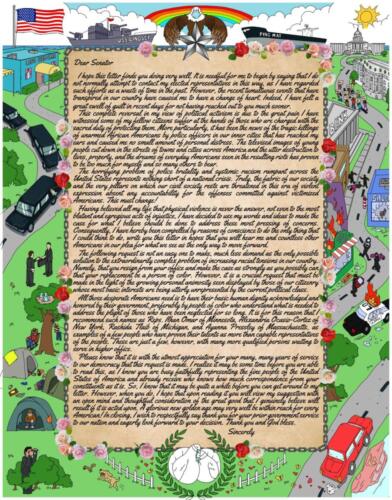 Dear Senator
I hope this letter finds you doing very well. It is needful for me to begin by saying that I do
not normally attempt to contact my elected representatives in this way, as I have regarded
such efforts as a waste of time in the past. However, the recent tumultuous events that have
transpired in our country have caused me to have a change of heart. Indeed, I have felt a
great swell of guilt in recent days for not having reached out to you much sooner.
This complete reversal in my view of political activism is due to the great pain I have
witnessed some of my fellow citizens suffer at the hands of those who are charged with the
sacred duty of protecting them. More particularly, it has been the news of the tragic killings
of unarmed African Americans by police officers in our inner cities that has reached my
ears and caused me no small amount of personal distress. The televised images of young
people cut down in the streets of towns and cities across America and the utter destruction to
lives, property, and the dreams of everyday Americans seen in the resulting riots has proven
to be too much for myself and so many others to bear.
The horrifying problem of police brutality and systemic racism rampant across the
United States represents nothing short of a national crisis. Truly, the fabric of our society
and the very pillars on which our civil society rests are threatened in this era of violent
oppression absent any accountability for the offenses committed against victimized
Americans. This must change.
Having believed all my life that physical violence is never the answer, not even to the most
blatant and egregious acts of injustice, I have decided to use my words and ideas to make the
case for what I believe should be done to address these most pressing of concerns.
Consequently, I have hereby been compelled by reasons of conscience to do the only thing that
I could think to do, write you this letter in hopes that you will hear me and countless other
Americans in our plea for what we see as the only way to move forward.
The following request is not an easy one to make, much less demand as the only possible
solution to the extraordinarily complex problem of increasing racial tensions in our country.
Namely, that you resign from your office and make the case as strongly as you possibly can
that your replacement be a person of color. However, it is a crucial request that must be
made in the light of the growing personal animosity seen displayed by those of our citizenry
whose most basic interests are being utterly unrepresented by the current political class.
All those desperate Americans need is to have their basic human dignity acknowledged and
honored by their government, preferably by people of color who understand what is needed to
address the plight of those who have been neglected for so long. It is for this reason that I
recommend such names as Reps. Ilhan Omar of Minnesota, Alexandria Ocasio-Cortez of
New York, Rashida Tlaib of Michigan, and Ayanna Pressley of Massachusetts, as
examples of a few people who have proven their talents as more than capable representatives
of the people. These are just a few, however, with many more qualified persons waiting to
serve in higher office.
Please know that it is with the utmost appreciation for your many, many years of service
to our democracy that this request is made. I realize it may be some time before you are able
to read this, as I know you are busy faithfully representing the fine people of the United
States of America and already receive who knows how much correspondence from your
constituents as it is. So, I know that it may be quite a while before you can get around to my
letter. However, when you do, I hope that upon reading it you will view my suggestion with
an open mind and thoughtful consideration of the great good that I genuinely believe will
result if it is acted upon. A glorious new golden age may very well be within reach for every
American! In closing, I wish to respectfully say thank you for your prior government service
to our nation and eagerly look forward to your decision. Thank you and God bless.
Sincerely